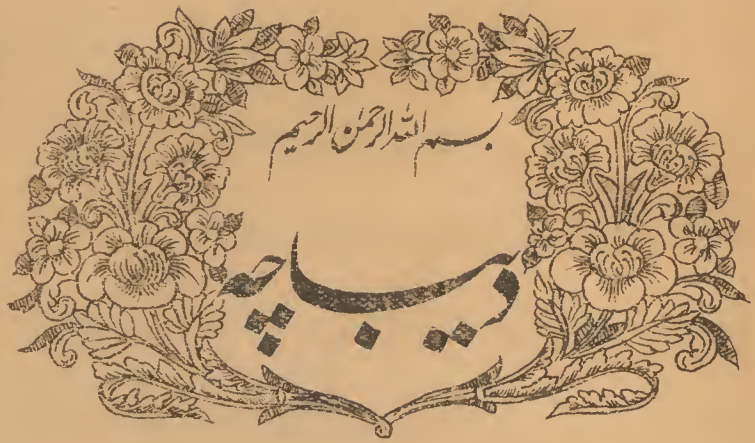 بسم الله الرحمن الرحیم
دیباچہ